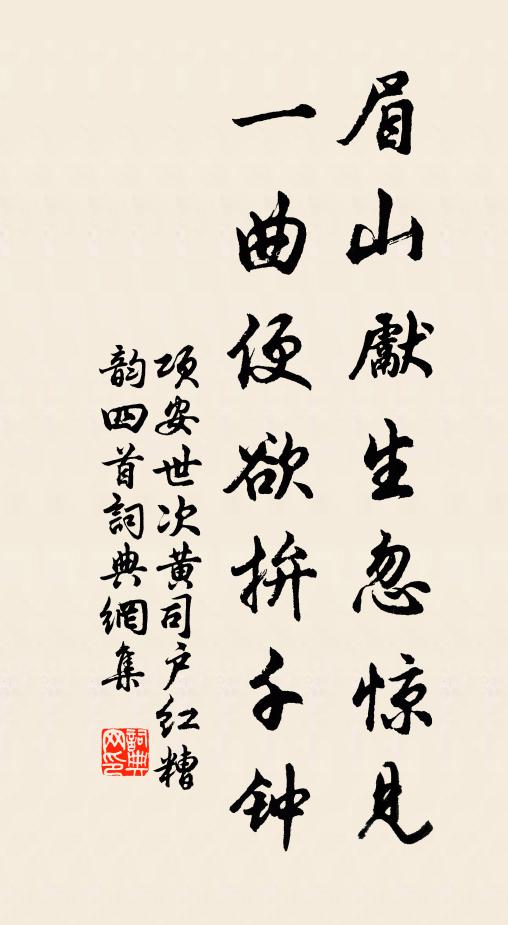 眉山獻生忽惊見
一曲便欲拚千钟
项安世次黄司户红糟
韵四首詞典網集
詞典
网印